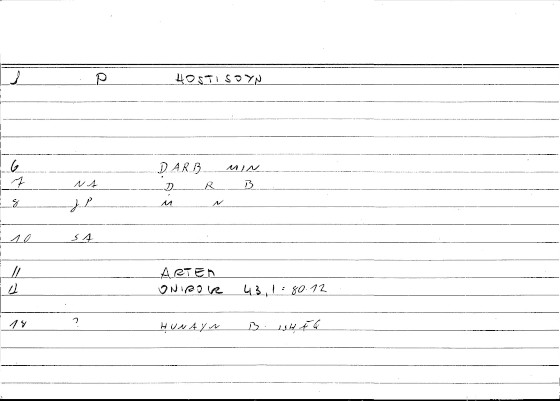 1 P HOSTISOYN
6 DARB MIN
7 NA D R B
8 JP M N
10 SA
11 ARTEM
12 ONIROCR 43,1:80.12
18 ? HUNAYN B. ISHĀG